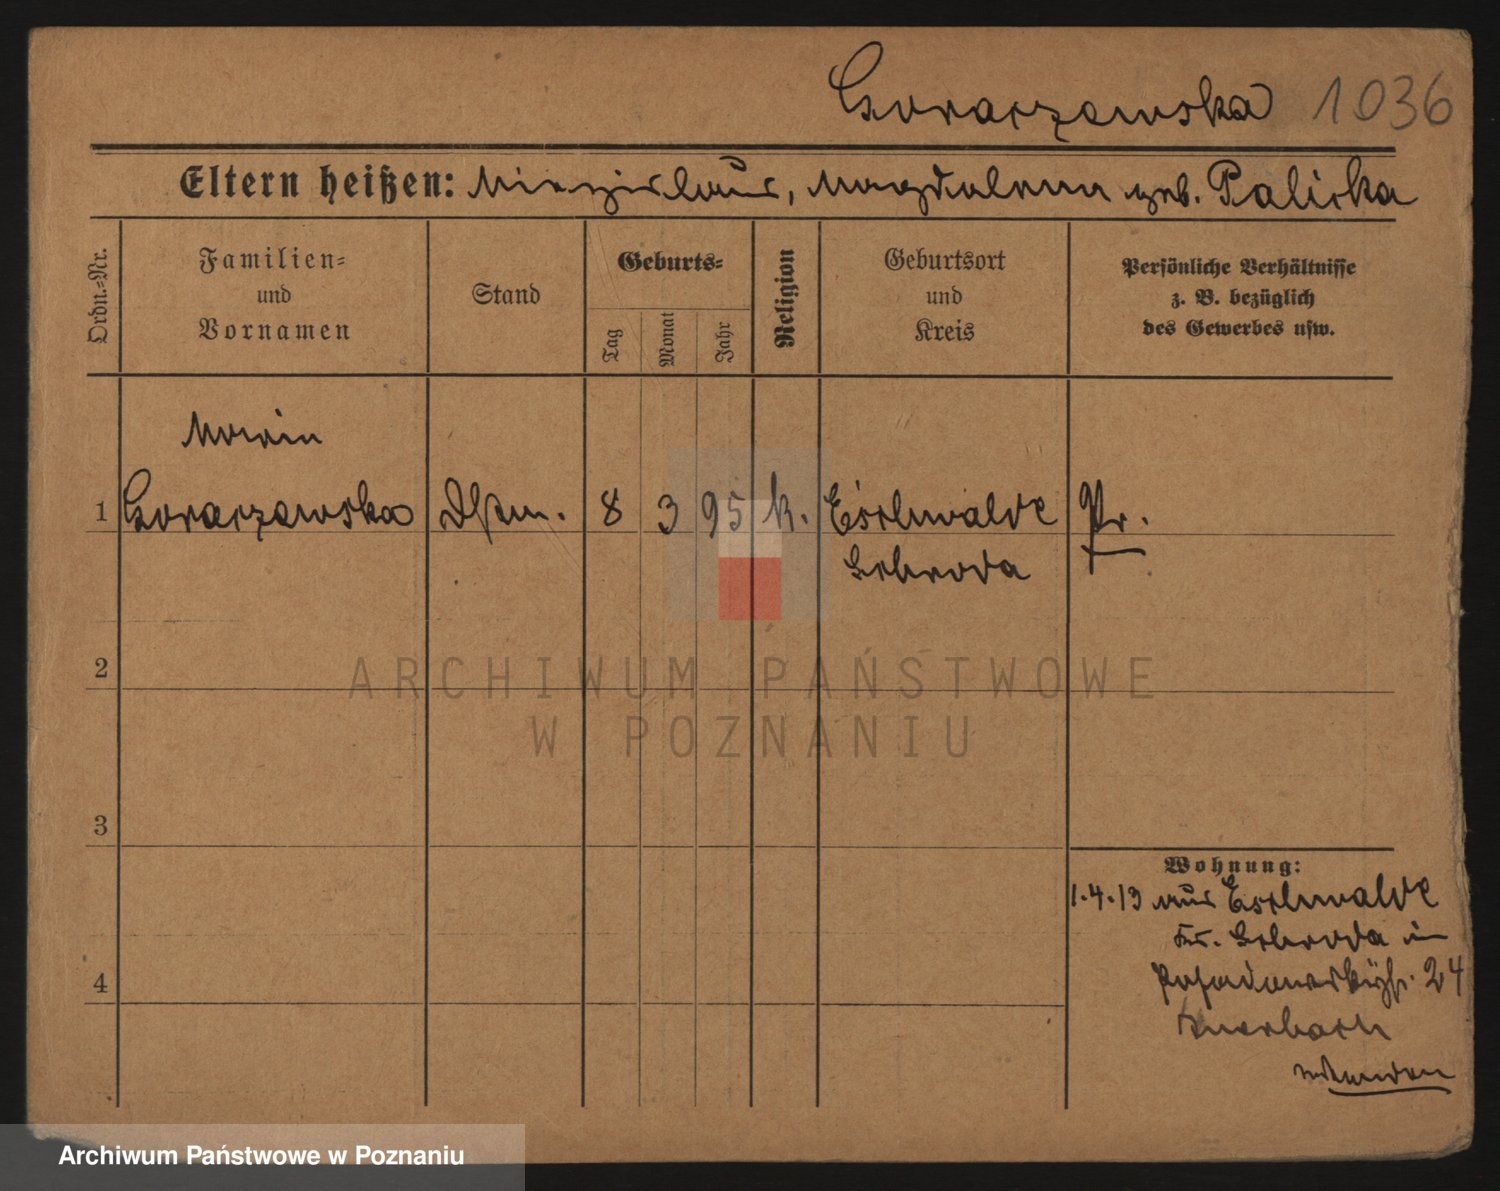 Goraczewska 1036
Eltern heißen: Miezislaus, Magdalena geb. Palicka
Ordn.=Nr.
Familien=
und
Vornamen
Stand
Geburts=
Tag
Monat
Jahr
Religion
Geburtsort
und
Kreis
Persönliche Verhältnisse
z. B. bezüglich
des Gewerbes usw.
Maria
1 Goraczewska Dstm. 8 3 95 k. Eschwalde Pr.
Schroda
2
3
4
Wohnung:
1.4.13 aus Eschwalde
Kr. Schroda in
24
Auerbach
ARCHIWUM PAŃSTWOWE
W POZNANIU
Archiwum Państwowe w Poznaniu